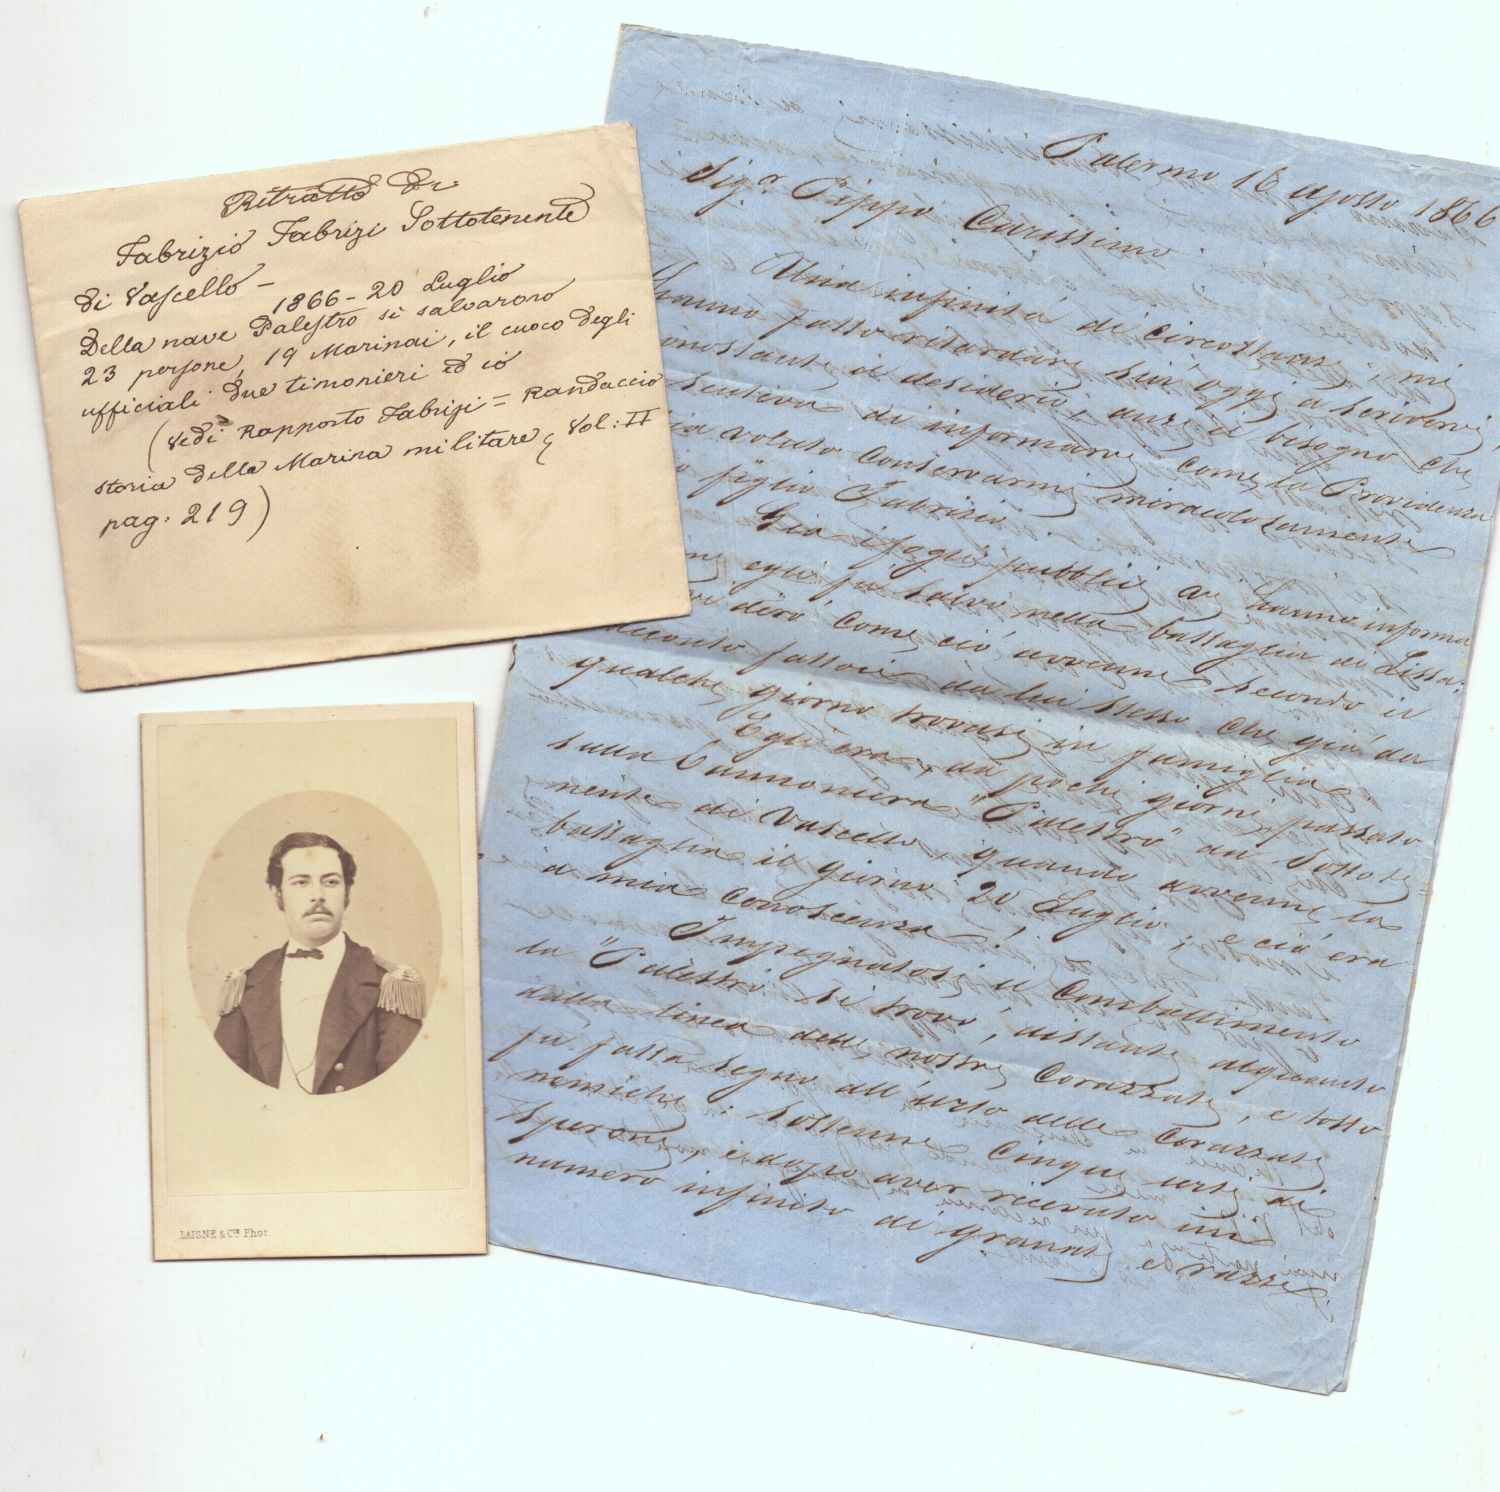 Ritratto di
Fabrizio Fabrizi Sottotenente
di Vascello –
1866 – 20 Luglio
Della nave Palestro si salvarono
23 persone, 19 Marinai, il cuoco degli
ufficiali due timonieri ed io
(Vedi Rapporto Fabrizi = Randaccio
storia della Marina militare, Vol: II
pag: 219)
LAISNE & Cie Phot
Palermo 16 agosto 1866
Sigr Pippo Carissimo
Una infinità di circostanze, mi
hanno fatto ritardare sin'oggi a scrivervi,
nonostante il desiderio, anzi il bisogno che
sentiva di informarvi come la Providenza
sia voluto conservarmi miracolosamente
figlio Fabrizio.
Già i fogli pubblici ve hanno informa
egli fu salvo nella battaglia di Lissa,
vi dirò come ciò avvenne secondo il
racconto fattoci da lui stesso, che già da
qualche giorno trovasi in famiglia.
Egli era, da pochi giorni, passato
sulla Cannoniera "Palestro" da Sottote=
nente di Vascello quando avvenne la
battaglia il giorno 20 Luglio; e ciò era
a mia conoscenza.
Impegnatosi il Combattimento
la "Palestro" si trovò, distante alquanto
dalla linea delle nostre Corazzate, e tosto
fu fatta segno all'urto delle Corazzate
nemiche; sostenne cinque urti di
Sperone, e dopo aver ricevuto un
numero infinito di granate e razzi